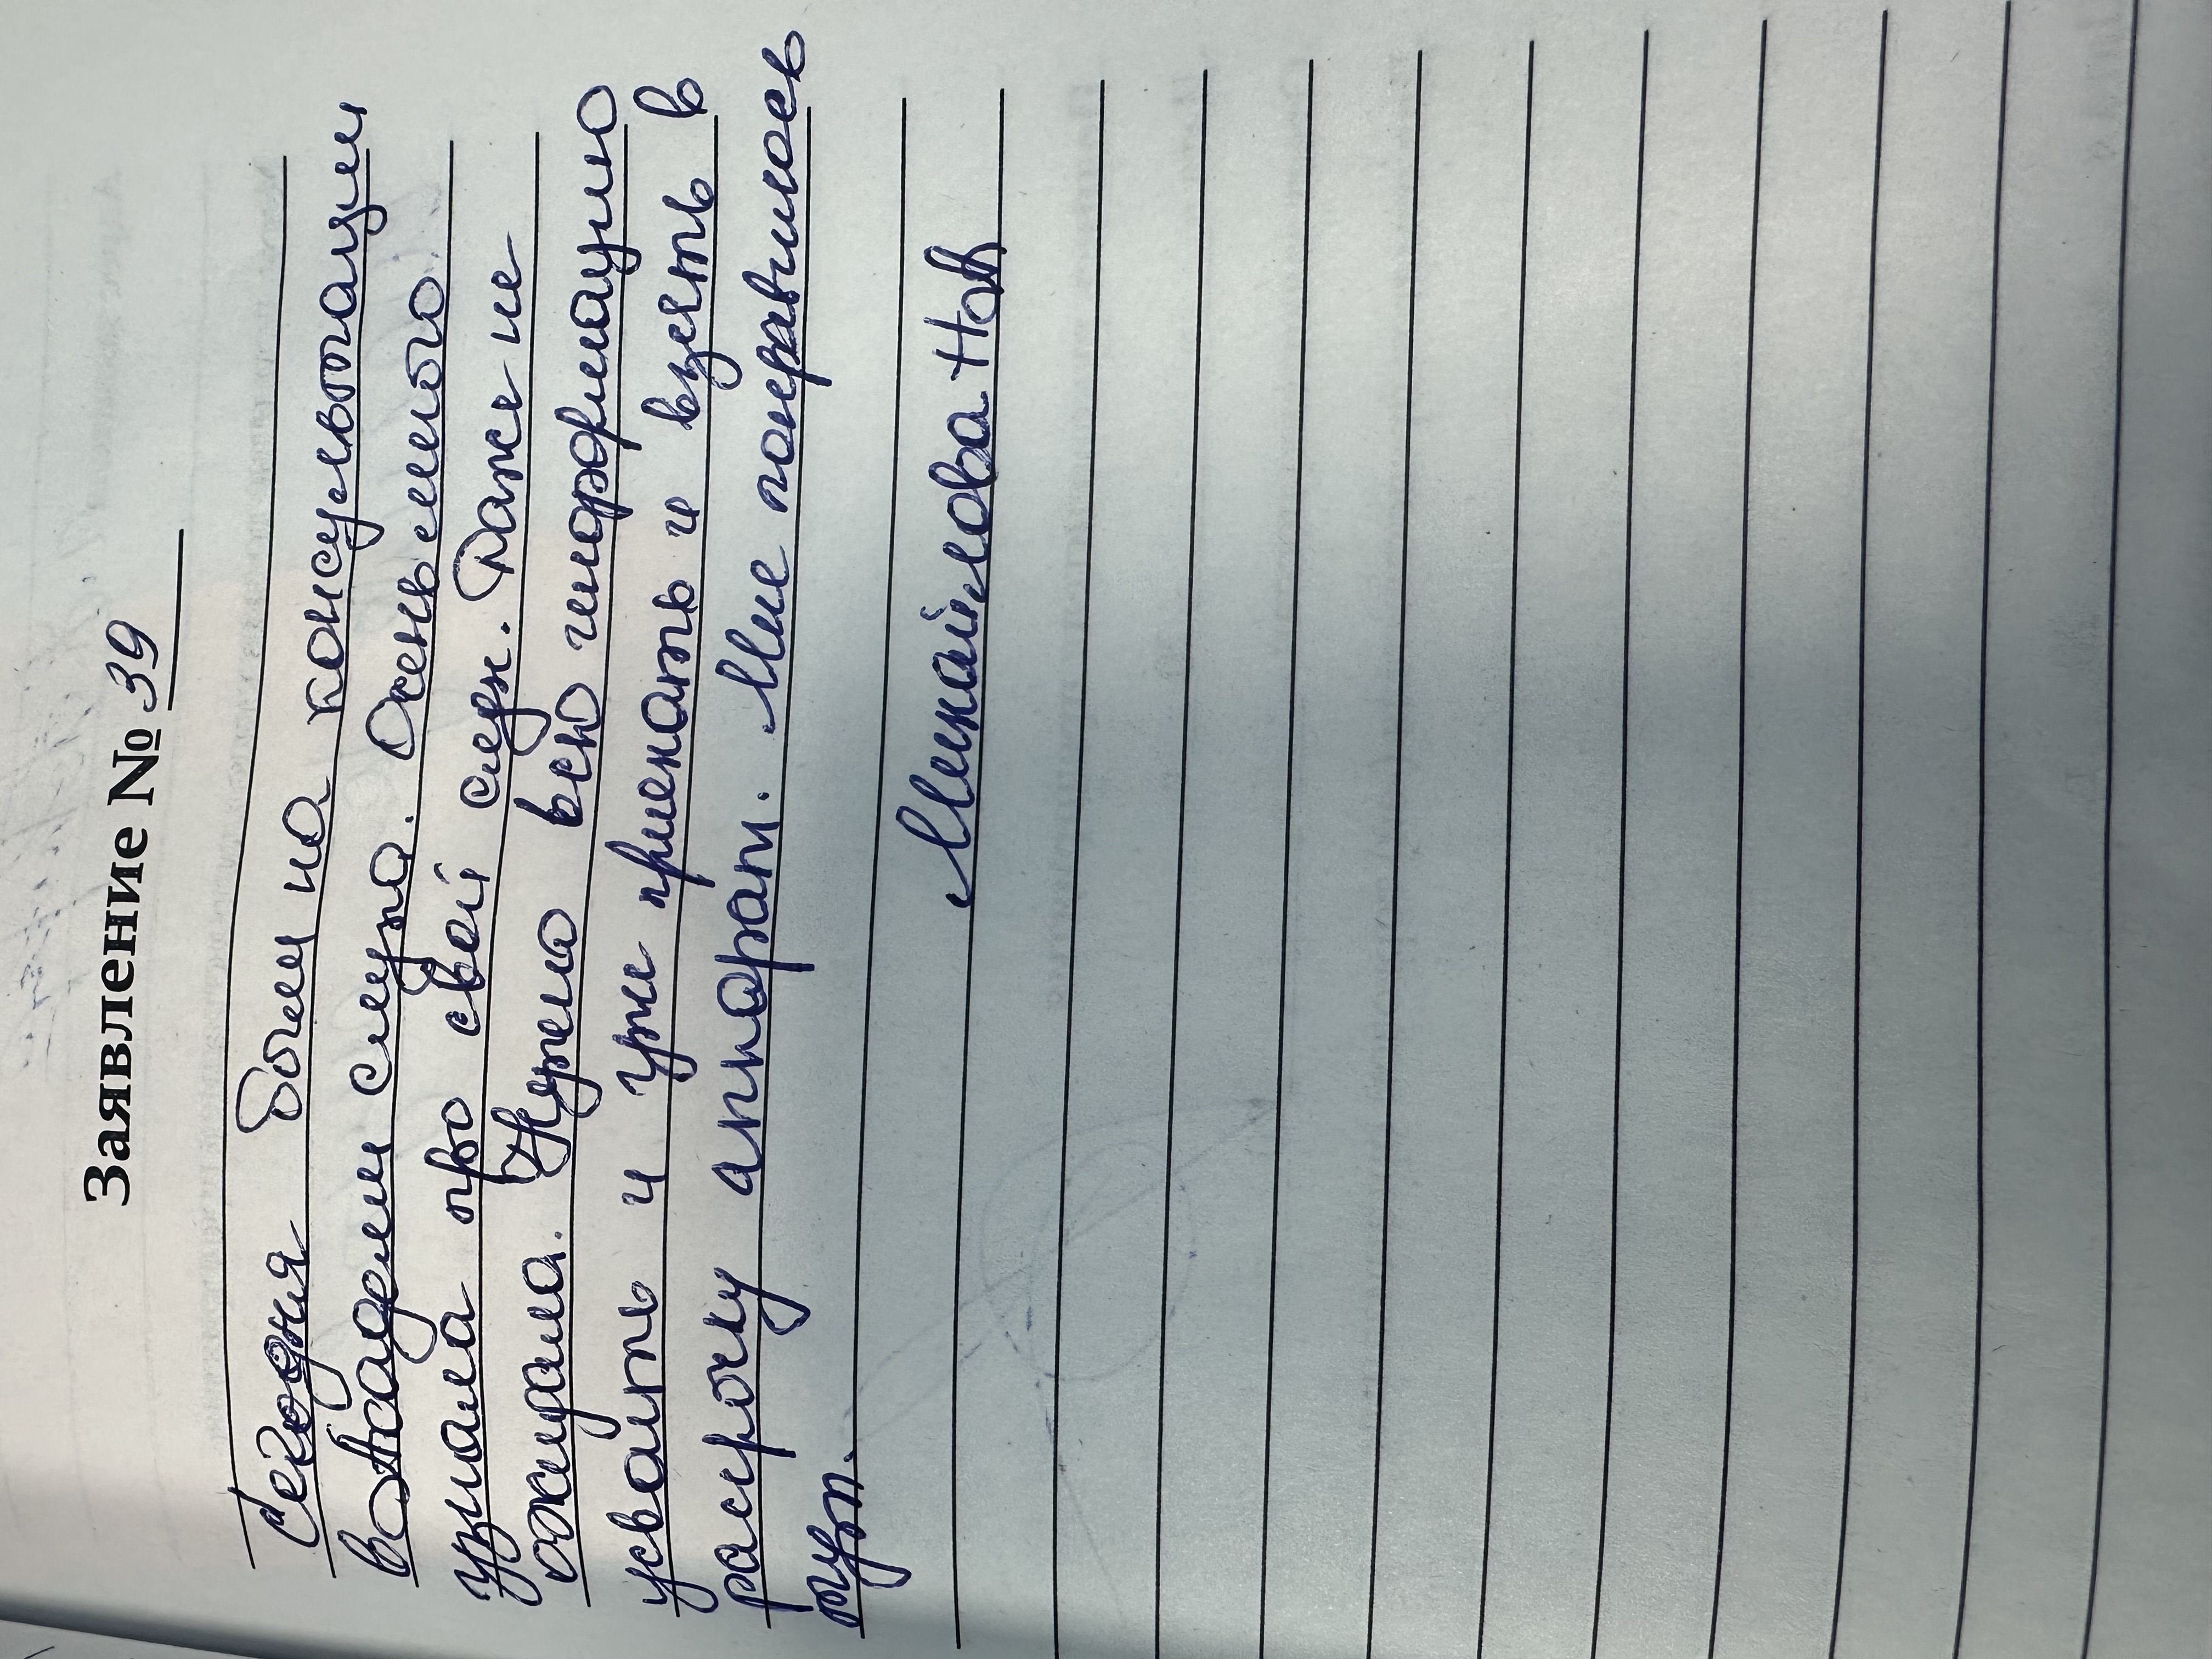 Заявление № 39
Сегодня были на консультации
в Академии слуха. Очень много
узнала про свой слух. Даже не
ожидала. Нужно всю информацию
усвоить и уже приехать и взять в
расрочку аппарат. Мне понравилось
тут.
Минайлова Н